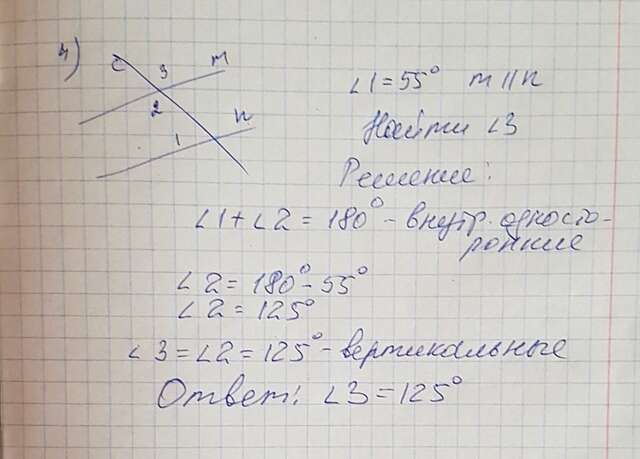 4)
c 3 m
2
1 n
∠1=55° m||n
Найти ∠3
Решение:
∠1+∠2=180°-внутр. односто-
ронние
∠2=180°-55°
∠2=125°
∠3=∠2=125°-вертикальные
Ответ: ∠3=125°